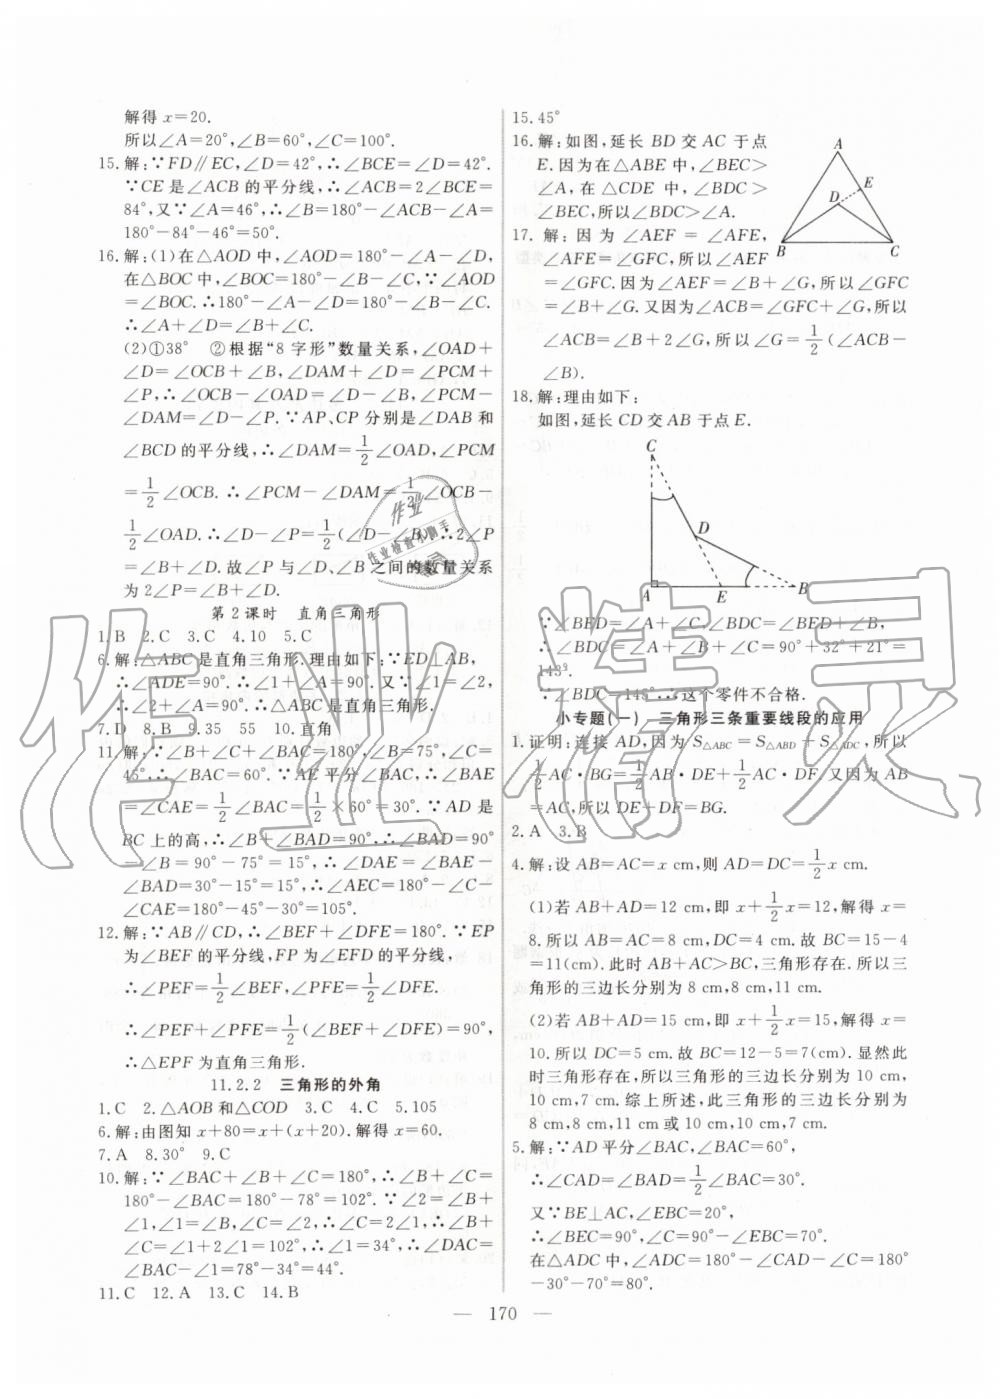 解得 x=20.
所以∠A=20°,∠B=60°,∠C=100°.
15.解:∵FD∥EC,∠D=42°,∴∠BCE=∠D=42°.
∵CE是∠ACB的平分线,∴∠ACB=2∠BCE=
84°,又∵∠A=46°,∴∠B=180°-∠ACB-∠A=
180°-84°-46°=50°.
16.解:(1)在△AOD中,∠AOD=180°-∠A-∠D,
在△BOC中,∠BOC=180°-∠B-∠C.∵∠AOD
=∠BOC.∴180°-∠A-∠D=180°-∠B-∠C.
∴∠A+∠D=∠B+∠C.
(2)①38° ②根据“8字形”数量关系,∠OAD+
∠D=∠OCB+∠B,∠DAM+∠D=∠PCM+
∠P,∴∠OCB-∠OAD=∠D-∠B,∠PCM-
∠DAM=∠D-∠P.∵AP、CP分别是∠DAB和
∠BCD的平分线,∴∠DAM=1/2∠OAD,∠PCM
=1/2∠OCB.∴∠PCM-∠DAM=1/2∠OCB-
1/2∠OAD.∴∠D-∠P=1/2(∠D-∠B).∴2∠P
=∠B+∠D.故∠P与∠D、∠B之间的数量关系
为2∠P=∠B+∠D.
第2课时 直角三角形
1.B 2.C 3.C 4.10 5.C
6.解:△ABC是直角三角形.理由如下:∵ED⊥AB,
∴∠ADE=90°.∴∠1+∠A=90°.又∵∠1=∠2,
∴∠2+∠A=90°.∴△ABC是直角三角形.
7.D 8.B 9.35 55 10.直角
11.解:∵∠B+∠C+∠BAC=180°,∠B=75°,∠C=
45°,∴∠BAC=60°.∵AE平分∠BAC,∴∠BAE
=∠CAE=1/2∠BAC=1/2×60°=30°.∵AD是
BC上的高,∴∠B+∠BAD=90°.∴∠BAD=90°
-∠B=90°-75°=15°,∴∠DAE=∠BAE-
∠BAD=30°-15°=15°,∴∠AEC=180°-∠C-
∠CAE=180°-45°-30°=105°.
12.解:∵AB∥CD,∴∠BEF+∠DFE=180°.∵EP
为∠BEF的平分线,FP为∠EFD的平分线,
∴∠PEF=1/2∠BEF,∠PFE=1/2∠DFE.
∴∠PEF+∠PFE=1/2(∠BEF+∠DFE)=90°,
∴△EPF为直角三角形.
11.2.2 三角形的外角
1.C 2.△AOB和△COD 3.C 4.C 5.105
6.解:由图知x+80=x+(x+20).解得x=60.
7.A 8.30° 9.C
10.解:∵∠BAC+∠B+∠C=180°,∴∠B+∠C=
180°-∠BAC=180°-78°=102°.∵∠2=∠B+
∠1,∠1=∠B,∠C=∠2,∴∠C=2∠1,∴∠B+
∠C=∠1+2∠1=102°,∴∠1=34°,∴∠DAC=
∠BAC-∠1=78°-34°=44°.
11.C 12.A 13.C 14.B
15.45°
16.解:如图,延长BD交AC于点
E.因为在△ABE中,∠BEC>
∠A,在△CDE中,∠BDC>
∠BEC,所以∠BDC>∠A.
A
E
D
B
C
17.解:因为∠AEF=∠AFE,
∠AFE=∠GFC,所以∠AEF
=∠GFC.因为∠AEF=∠B+∠G,所以∠GFC
=∠B+∠G.又因为∠ACB=∠GFC+∠G,所以
∠ACB=∠B+2∠G,所以∠G=1/2(∠ACB-
∠B).
18.解:理由如下:
如图,延长CD交AB于点E.
C
D
A
E
B
∵∠BED=∠A+∠C,∠BDC=∠BED+∠B,
∴∠BDC=∠A+∠B+∠C=90°+32°+21°=
143°.
∵∠BDC=145°∴这个零件不合格.
小专题(一) 三角形三条重要线段的应用
1.证明:连接AD,因为S△ABC=S△ABD+S△ADC,所以
1/2AC·BG=1/2AB·DE+1/2AC·DF.又因为AB
=AC,所以DE+DF=BG.
2.A 3.B
4.解:设AB=AC=x cm,则AD=DC=1/2x cm.
(1)若AB+AD=12 cm,即x+1/2x=12,解得x=
8.所以AB=AC=8 cm,DC=4 cm.故BC=15-4
=11(cm).此时AB+AC>BC,三角形存在.所以三
角形的三边长分别为8 cm,8 cm,11 cm.
(2)若AB+AD=15 cm,即x+1/2x=15,解得x=
10.所以DC=5 cm.故BC=12-5=7(cm).显然此
时三角形存在,所以三角形的三边长分别为10 cm,
10 cm,7 cm.综上所述,此三角形的三边长分别为
8 cm,8 cm,11 cm或10 cm,10 cm,7 cm.
5.解:∵AD平分∠BAC,∠BAC=60°,
∴∠CAD=∠BAD=1/2∠BAC=30°.
又∵BE⊥AC,∠EBC=20°,
∴∠BEC=90°,∠C=90°-∠EBC=70°.
在△ADC中,∠ADC=180°-∠CAD-∠C=180°
-30°-70°=80°.
— 170 —
作业精灵
作业
作业检查小助手